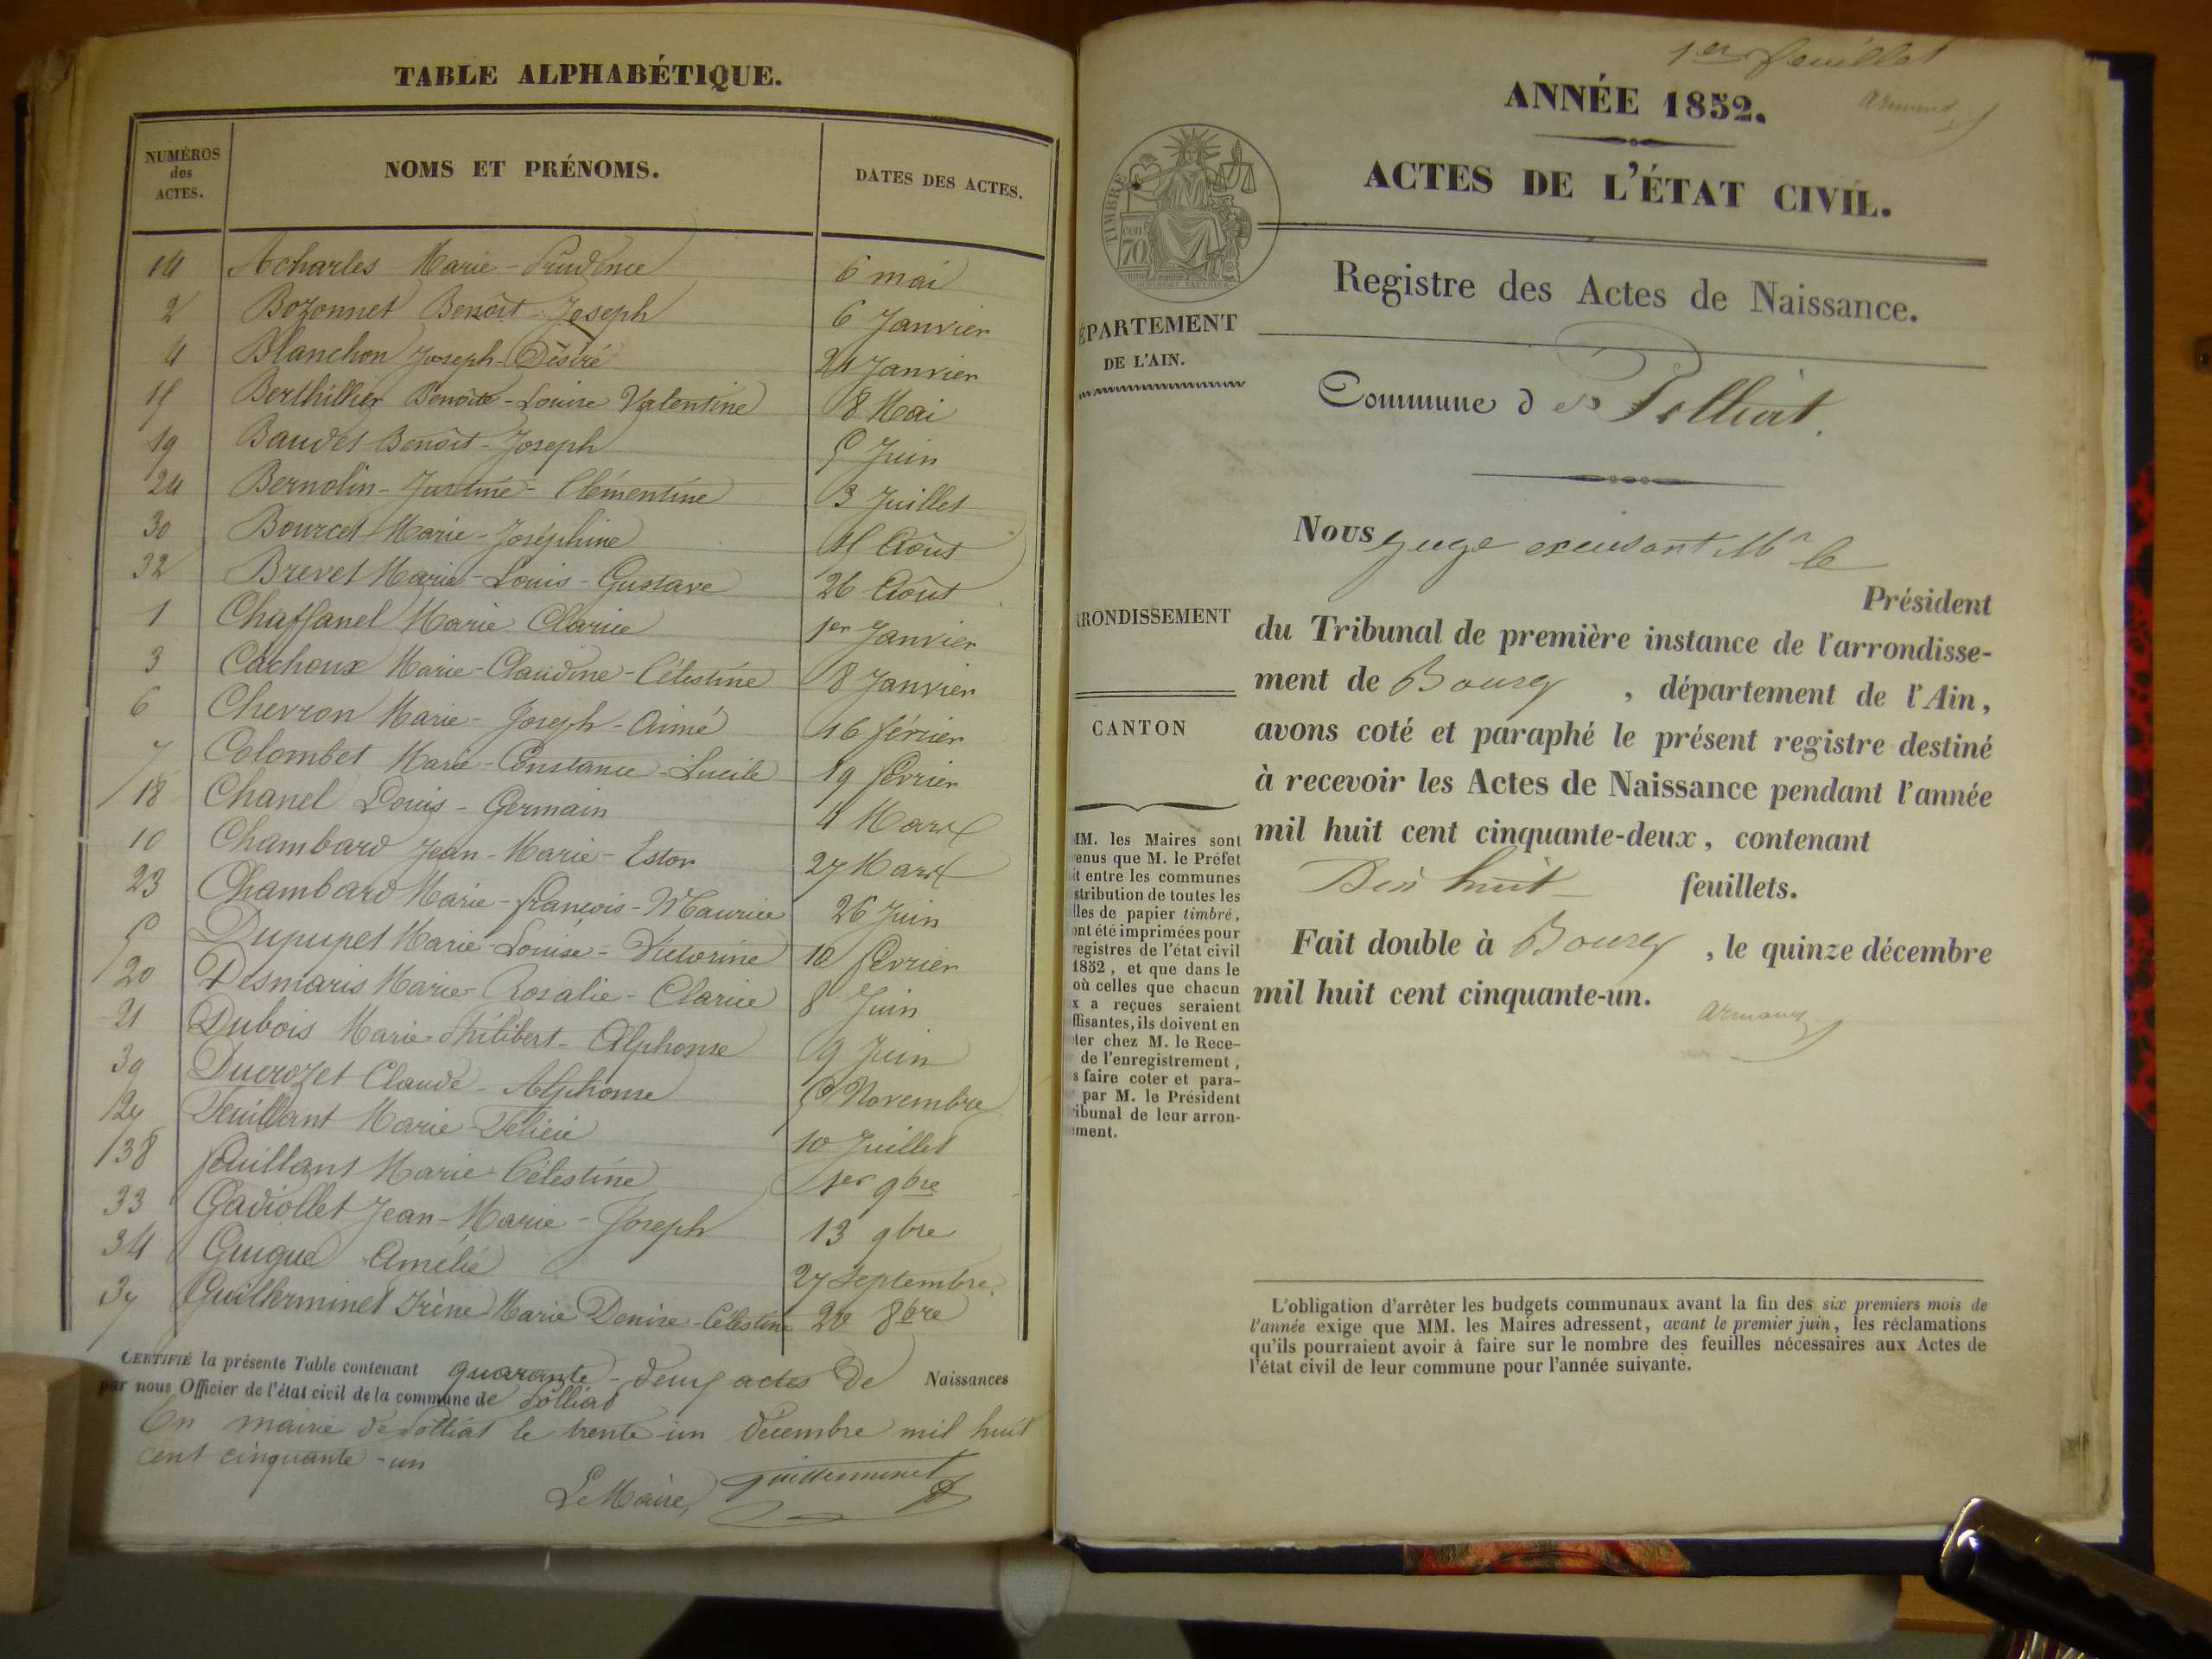 TABLE ALPHABÉTIQUE.
NUMÉROS des ACTES.
NOMS ET PRÉNOMS.
DATES DES ACTES.
14 Acharles Marie-Prudence 6 mai
2 Bozonnet Benoît-Joseph 6 Janvier
4 Blanchon Joseph-Désiré 21 Janvier
15 Berthillier Benoite-Louise Valentine 8 Mai
19 Baudet Benoît-Joseph 5 Juin
24 Bernolin-Justine-Clémentine 3 Juillet
30 Bourcet Marie-Joséphine Août
32 Brevet Marie-Louis-Gustave 26 Août
1 Chaffanel Marie Clarice 1er Janvier
3 Cachoux Marie-Claudine-Célestine 8 Janvier
6 Chevron Marie-Joseph-Aimé 16 février
7 Colombet Marie-Constance-Lucile 19 février
18 Chanel Louis-Germain 4 Mars
10 Chambard Jean-Marie-Estor 27 Mars
23 Chambard Marie-françois-Maurice 26 Juin
5 Dupupet Marie-Louise-Victorine 10 février
20 Desmaris Marie-Rosalie-Clarice 8 Juin
21 Dubois Marie-Philibert-Alphonse 9 Juin
39 Ducrozet Claude-Alphonse 5 Novembre
27 Feuillant Marie Félicie 10 Juillet
38 feuillant Marie-Célestine 1er 9bre
33 Gadiollet Jean-Marie-Joseph 13 9bre
34 Guigue Amélie 27 Septembre
37 Guillerminet Irène Marie Denise-Célestine 20 8bre
CERTIFIÉ la présente Table contenant quarante-deux actes de Naissances
par nous Officier de l'état civil de la commune de Polliat
En mairie de Polliat le trente-un décembre mil huit
cent cinquante-un
Le Maire, guillerminet
1er feuillet
ANNÉE 1852.
armand
ACTES DE L'ÉTAT CIVIL.
TIMBRE
cen. 70
Registre des Actes de Naissance.
ÉPARTEMENT
DE L'AIN.
Commune de Polliat.
Nous juge excusant Mr le
Président
RRONDISSEMENT
du Tribunal de première instance de l'arrondisse-
ment de Bourg, département de l'Ain,
CANTON
avons coté et paraphé le présent registre destiné
à recevoir les Actes de Naissance pendant l'année
mil huit cent cinquante-deux, contenant
Dix huit feuillets.
Fait double à Bourg, le quinze décembre
mil huit cent cinquante-un.
armand
MM. les Maires sont
enus que M. le Préfet
it entre les communes
stribution de toutes les
lles de papier timbré,
ont été imprimées pour
registres de l'état civil
1852, et que dans le
où celles que chacun
x a reçues seraient
ffisantes, ils doivent en
ter chez M. le Rece-
de l'enregistrement,
s faire coter et para-
par M. le Président
ibunal de leur arron-
ment.
L'obligation d'arrêter les budgets communaux avant la fin des six premiers mois de
l'année exige que MM. les Maires adressent, avant le premier juin, les réclamations
qu'ils pourraient avoir à faire sur le nombre des feuilles nécessaires aux Actes de
l'état civil de leur commune pour l'année suivante.